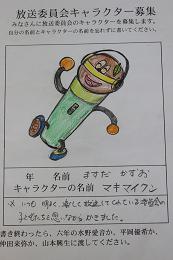 放送委員会キャラクター募集
みなさんに放送委員会のキャラクターを募集します。
自分の名前とキャラクターの名前を忘れずに書いてください。
年 名前 ますだ かずお
キャラクターの名前 マキマイクン
※ いつも 明るく、楽しく 放送してくれている 委員会の
と思いながら かきました。
書き終わったら、六年の水野愛音か、平岡優希か、
仲田来弥か、山本興生に渡してください。